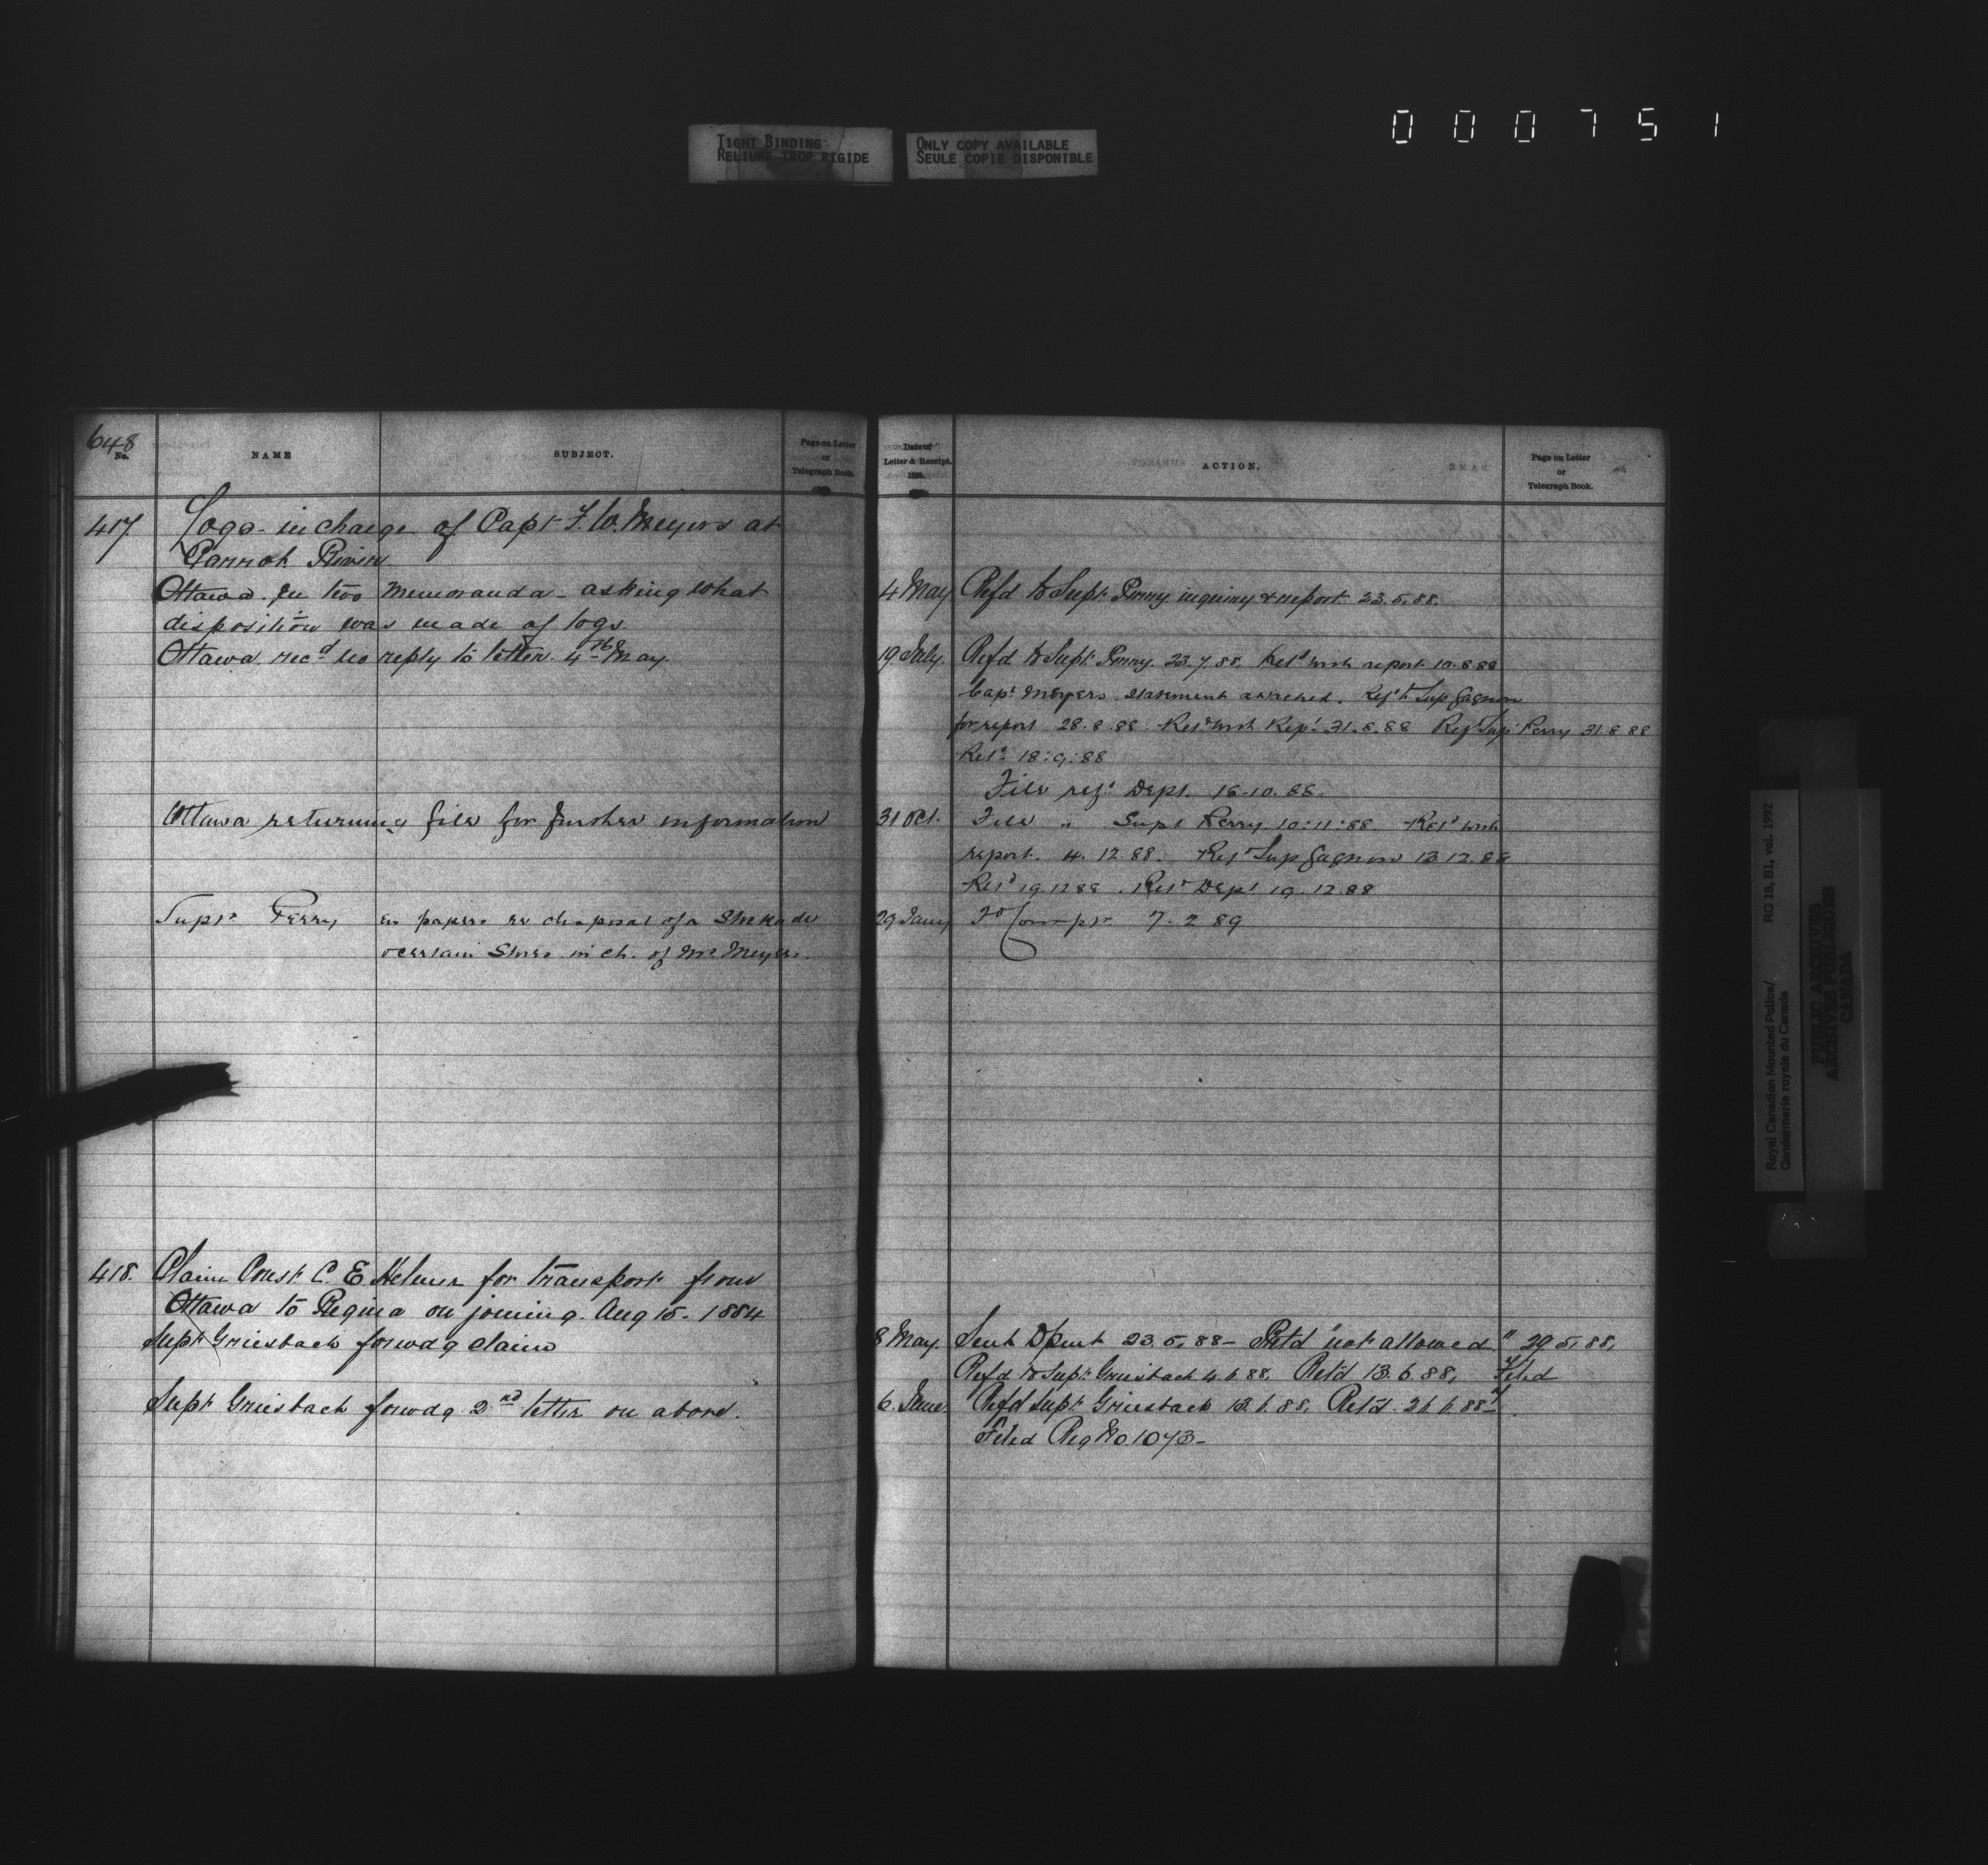 0 0 0 7 5 1
TIGHT BINDING
RELIURE TROP RIGIDE
ONLY COPY AVAILABLE
SEULE COPIE DISPONIBLE
648
No.
NAME
SUBJECT.
Page on Letter
or
Telegraph Book.
417. Logs in charge of Capt F. W. Meyers at
Carrot River
Ottawa. In two memoranda - asking what
disposition was made of logs.
Ottawa. recd no reply to letter 4th May.
Ottawa returning file for further information
Supt Perry in papers re disposal of a
certain Stores in ch. of Mr Meyers.
418. Claim Const C. E. Helmer for transport from
Ottawa to Regina on joining. Aug 15. 1884
Supt Griesbach forwdg claim
Supt Griesbach forwdg 2nd letter on above.
Date of
Letter & Receipt.
188 .
ACTION.
Page on Letter
or
Telegraph Book.
4 May Refd to Supt Perry inquiry & report 23.5.88.
19 July. Refd to Supt Perry. 23.7.88. Retd with report 10.8.88
Capt Meyers statement attached. Refd to Sup Gagnon
for report 28.8.88 Retd with Rept 31.8.88 Refd Supt Perry 31 8 88
Retd 18:9:88
File refd Dept. 16.10.88.
31 Oct. File " Supt Perry 10:11:88 Retd with
report. 4. 12. 88. Refd Sup Gagnon 13 12. 88
Retd 19.12 88. Retd Dept 19. 12. 88
29 Jany To Compr 7. 2 89
8 May. Sent Dpmt 23.5.88 - Retd "not allowed" 29.5.88.
Refd to Supt Griesbach 4.6.88. Retd 13.6.88. Filed
6. June. Refd Supt Griesbach 13.6.88. Retd. 26.6.88
Filed Reg No 1073 -
Royal Canadian Mounted Police/
Gendarmerie royale du Canada
RG 18, B1, vol. 1992
PUBLIC ARCHIVES
ARCHIVES PUBLIQUES
CANADA